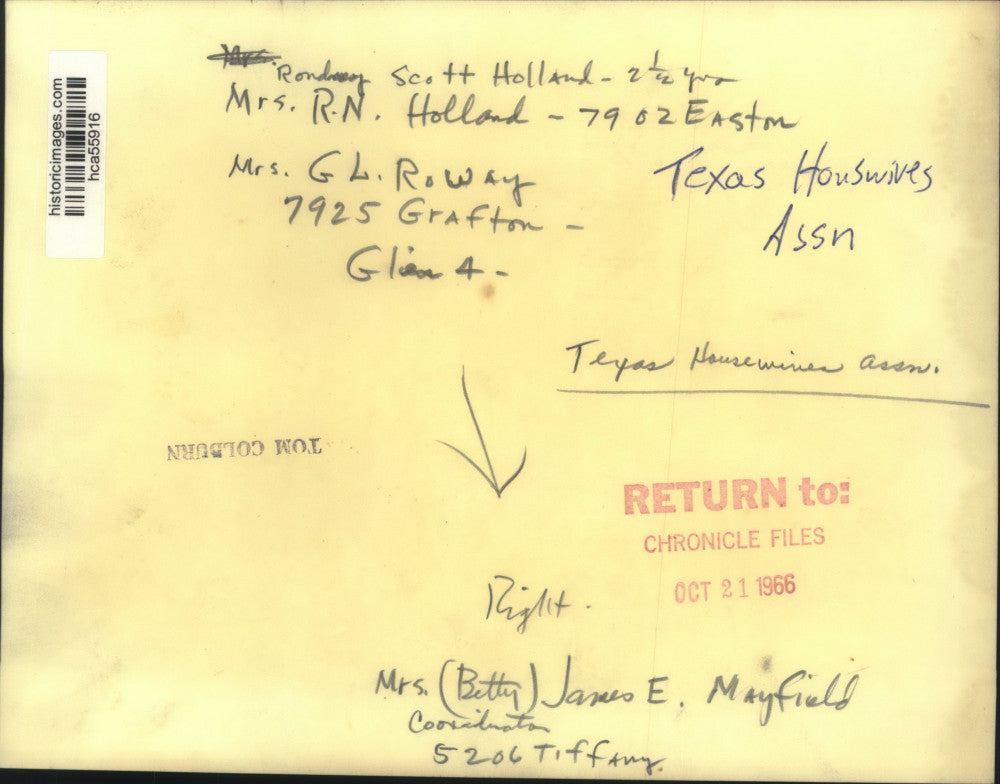 historicimages.com
hca55916
Mrs.
Scott Holland - 2 1/2 yrs
Mrs. R.N. Holland - 7902 Easton
Mrs. G L. Roway
7925 Grafton -
4 -
Texas Houswives
Assn
Texas Housewives assn.
TOM COLBURN
RETURN to:
CHRONICLE FILES
OCT 21 1966
Right.
Mrs. (Betty) James E. Mayfield
Coordinator
5206 Tiffany